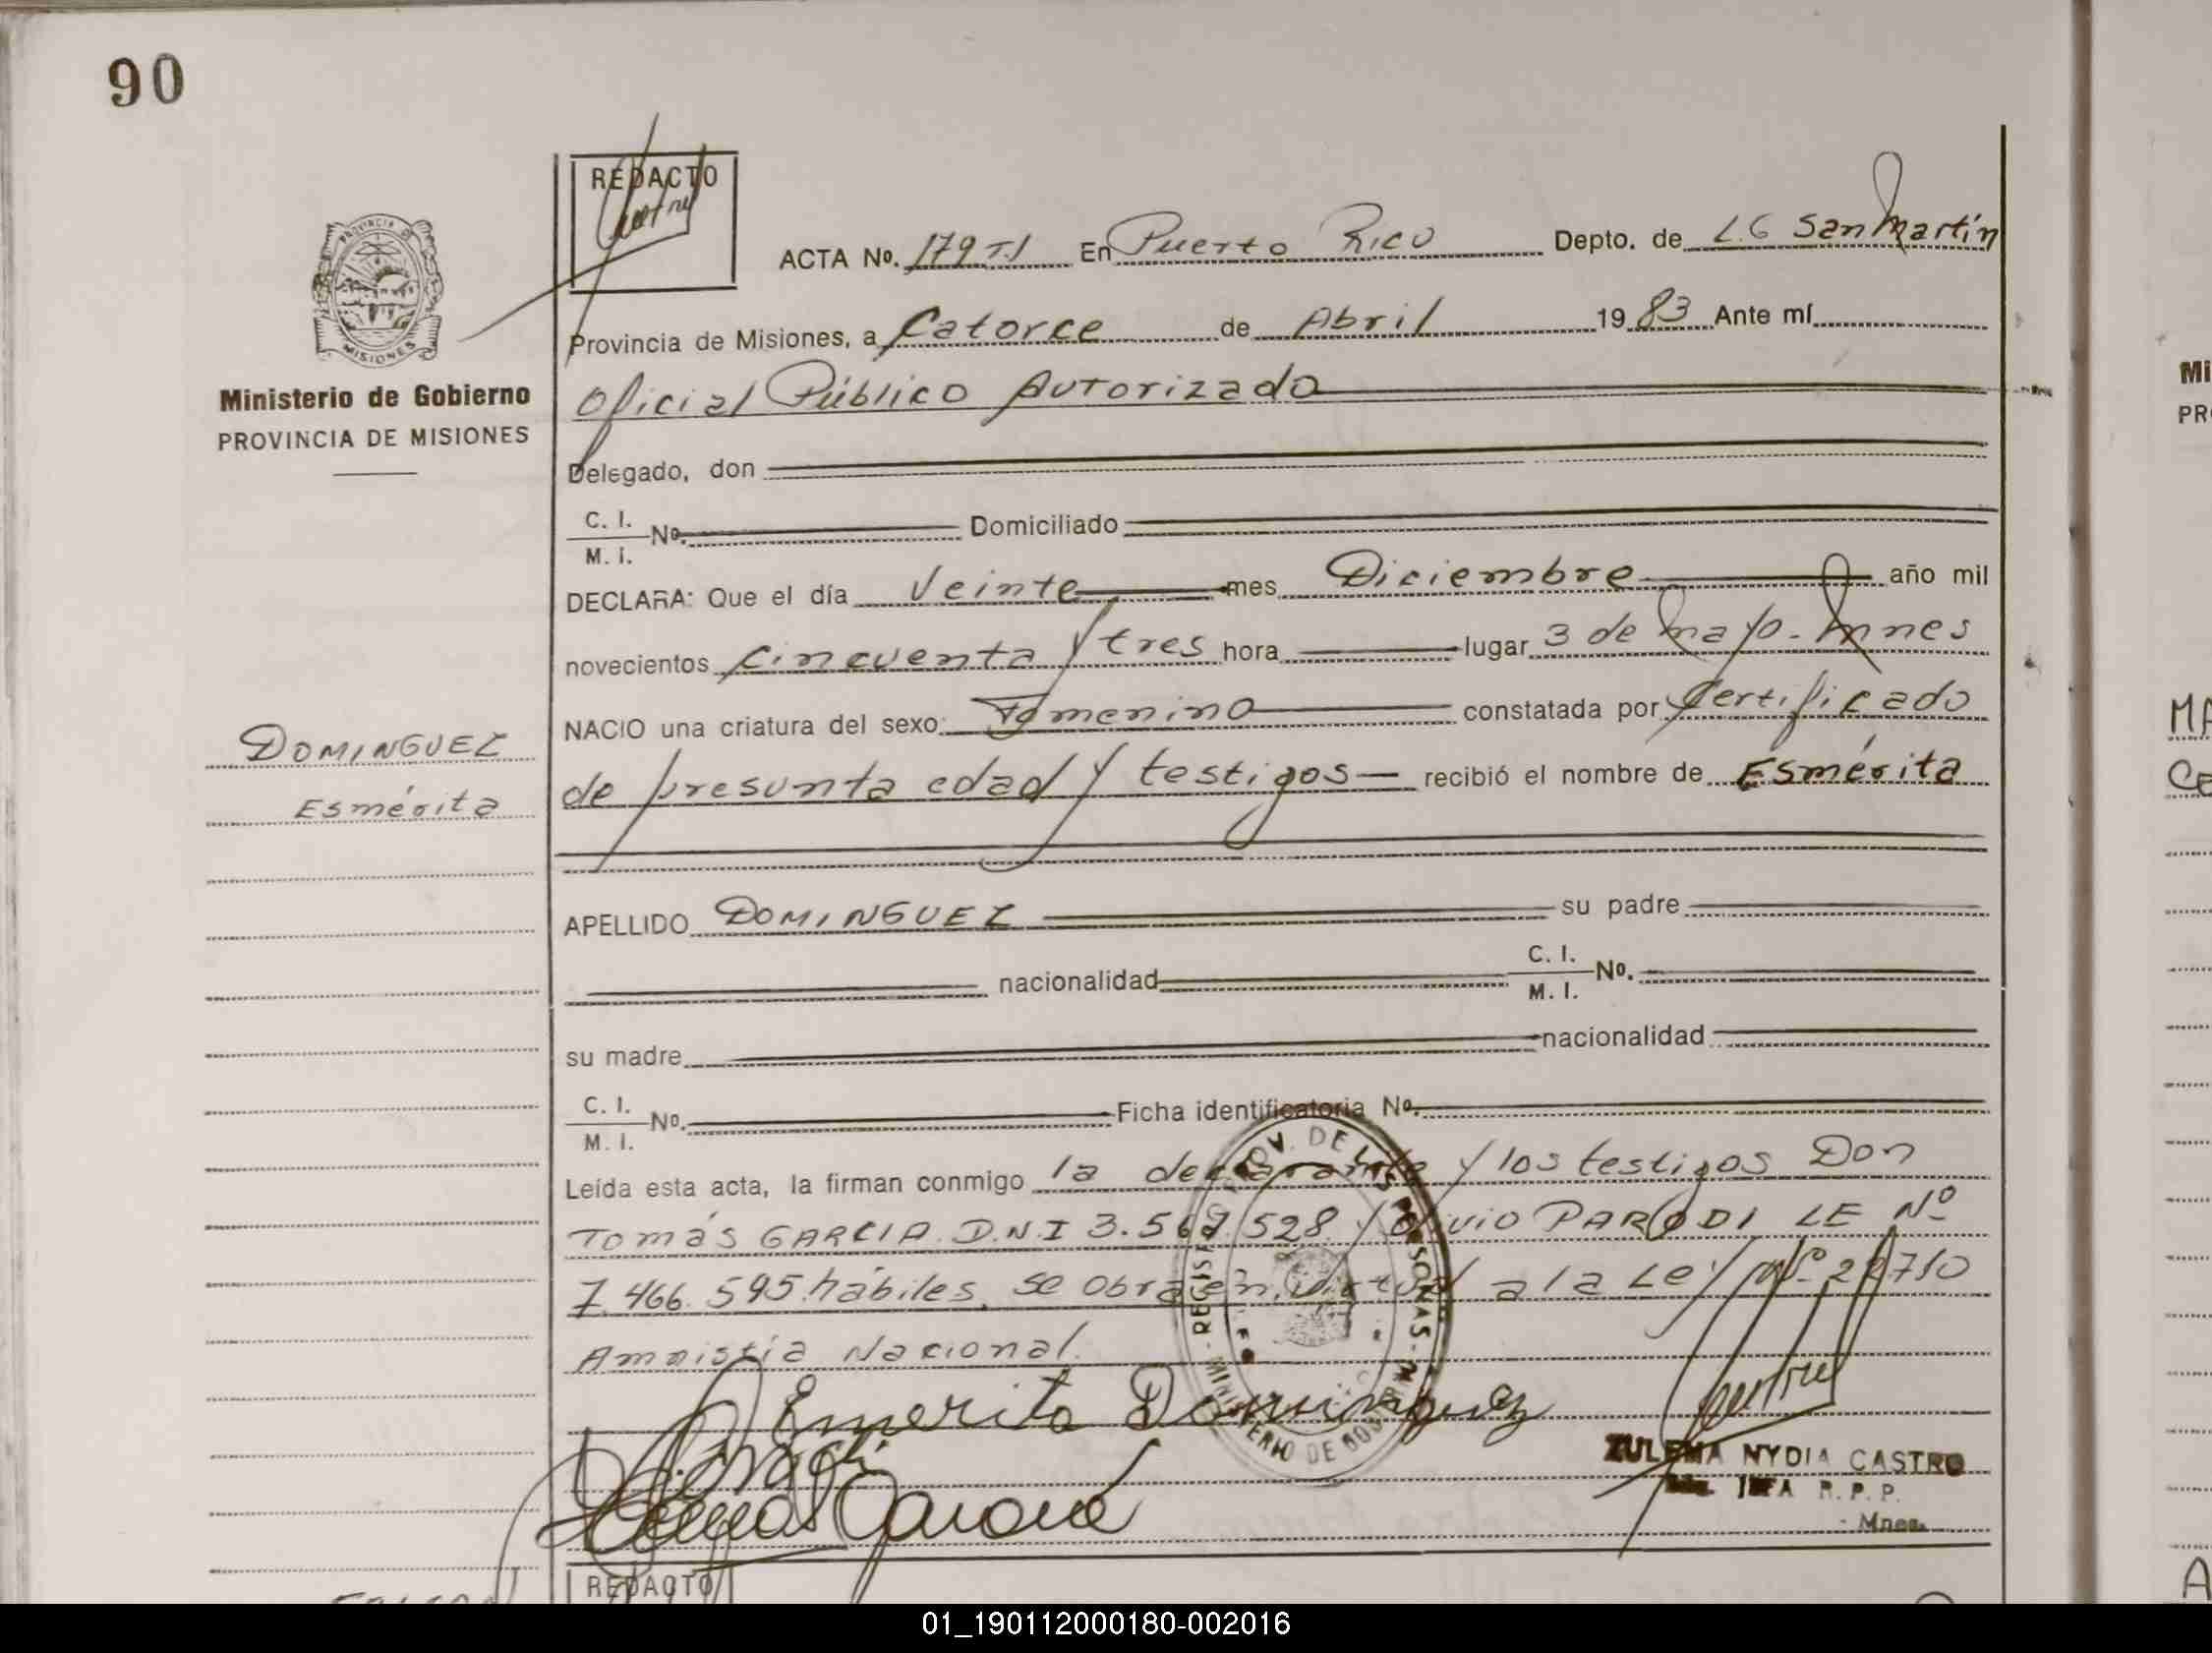 90
REDACTO
ACTA Nº. 179 T.I En Puerto Rico Depto. de L.G San Martín
PROVINCIA DE
MISIONES
Provincia de Misiones, a Catorce de Abril 1983 Ante mí
Ministerio de Gobierno
PROVINCIA DE MISIONES
Oficial Público Autorizado
Delegado, don
C. I.
M. I. Nº. Domiciliado
DECLARA: Que el día Veinte mes Diciembre año mil
novecientos Cincuenta y tres hora lugar 3 de mayo - Mnes
NACIO una criatura del sexo: Femenino constatada por Certificado
DOMINGUEZ
Esmérita
de presunta edad y testigos recibió el nombre de Esmérita
APELLIDO DOMINGUEZ su padre
nacionalidad C. I.
M. I. Nº.
su madre nacionalidad
C. I.
M. I. Nº. Ficha identificatoria Nº.
Leída esta acta, la firman conmigo la declarante y los testigos Don
Tomás GARCIA. D.N.I 3.567.528 y Olivio PARODI LE Nº
7.466.595 hábiles, se obra en virtud a la Ley Nº 22.710
Amnistía Nacional.
Emerita Dominguez
ZULEMA NYDIA CASTRO
R. P. P.
Mnes.
REDACTO
Mi
PR
MA
Ce
A
01_190112000180-002016